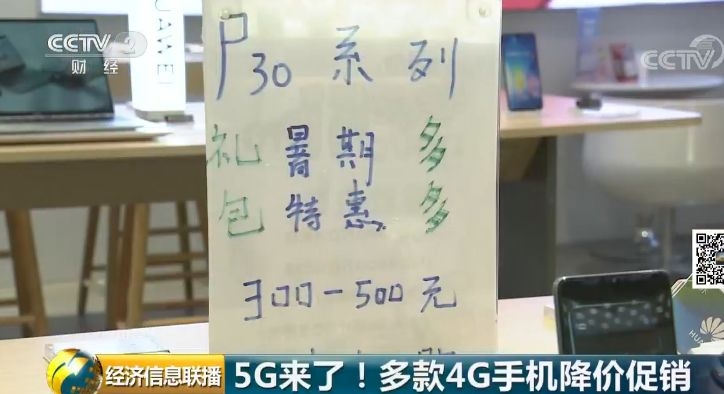 CCTV 2
财经
HUAWEI
CCTV
P30系列
礼 暑期 多
包 特惠 多
300-500元
HUA
经济信息联播
5G来了！多款4G手机降价促销